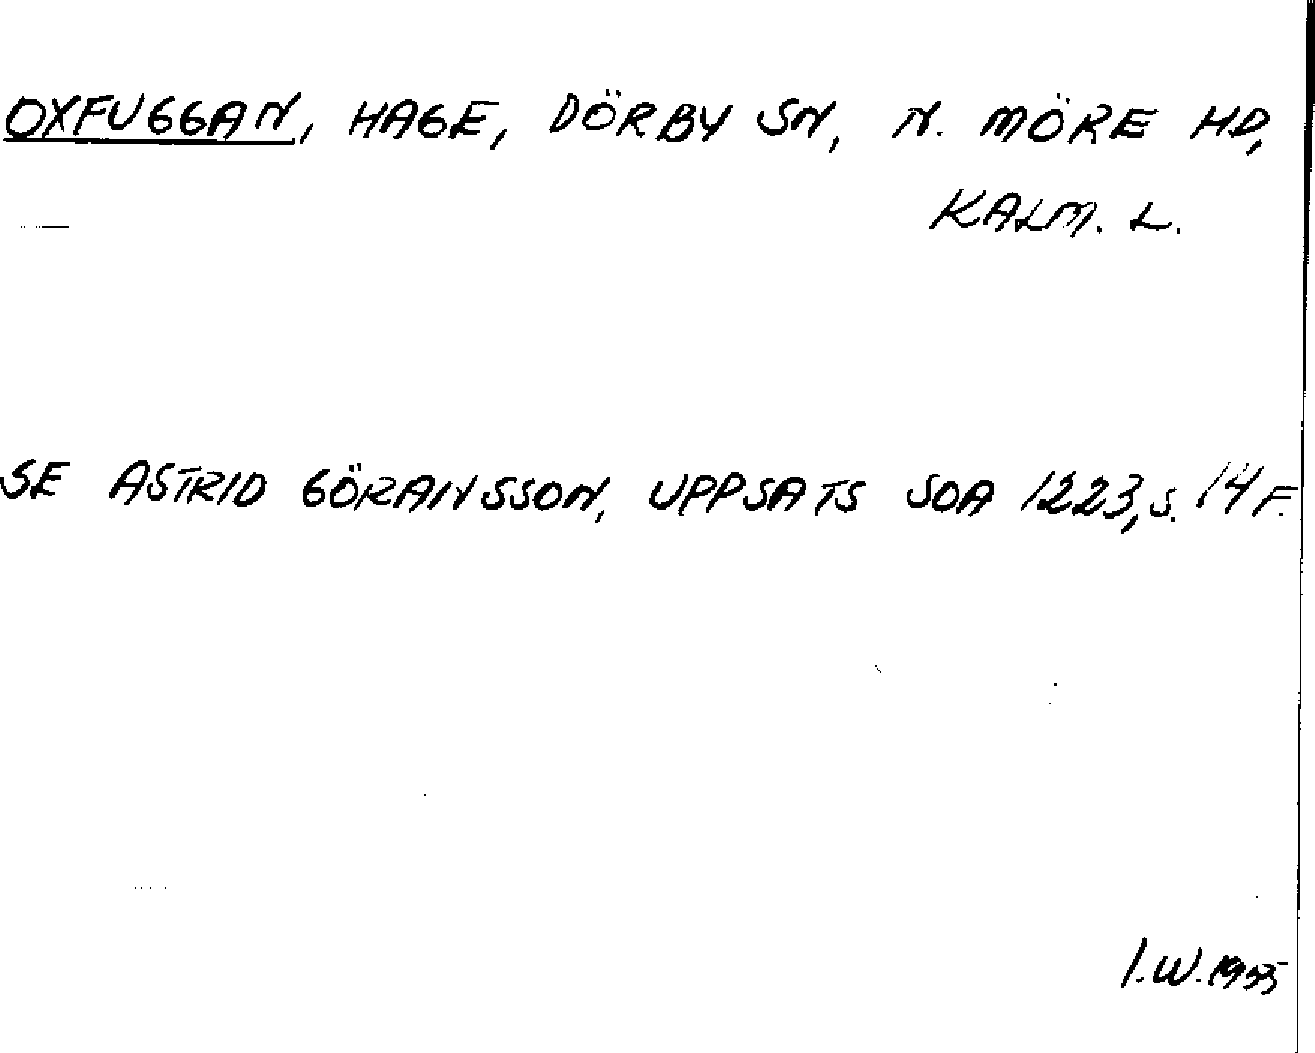 OXFUGGAN, HAGE, DÖRBY SN, N. MÖRE HD,
KALM. L.
SE ASTRID GÖRANSSON, UPPSATS SOA 1223, S. 14 F.
I.W. 1955